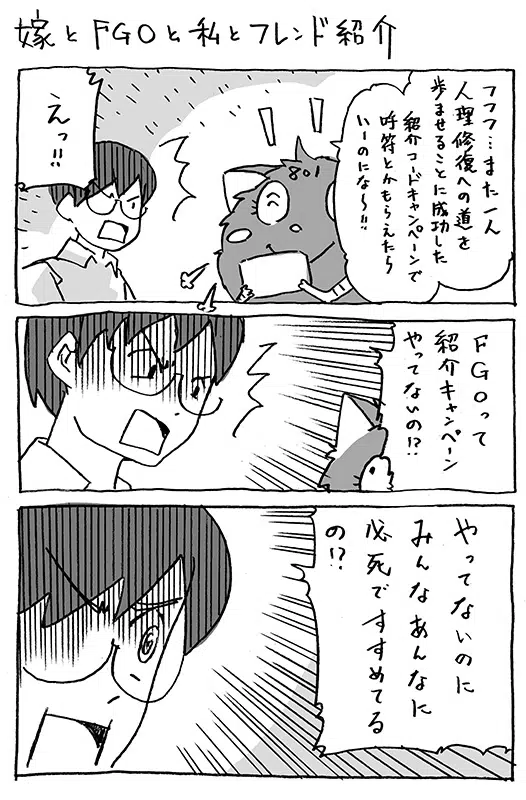 嫁とFGOと私とフレンド紹介
フフフ…また一人
人理修復への道を
歩ませることに成功した
紹介コードキャンペーンで
呼符とかもらえたら
いーのにな〜!!
801
えっ!!
FGOって
紹介キャンペーン
やってないの!?
やってないのに
みんなあんなに
必死ですすめてる
の!?